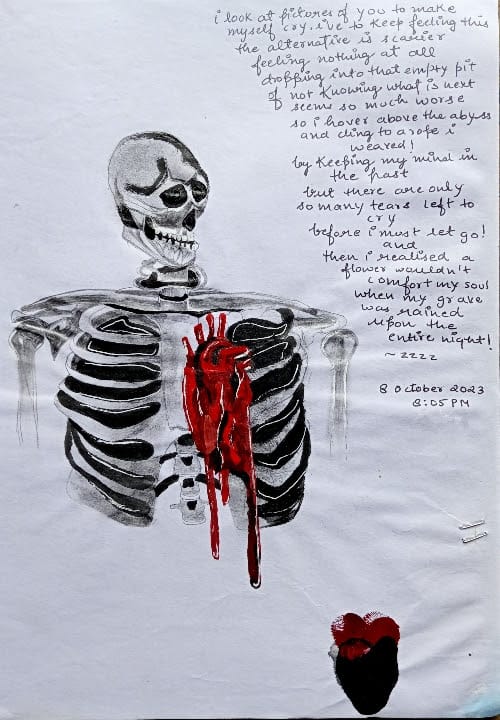 i look at pictures of you to make
myself cry. i've to keep feeling this
the alternative is scarier
feeling nothing at all
dropping into that empty pit
of not knowing what is next
seems so much worse
so i hover above the abyss
and cling to a rope i
weared!
by keeping my mind in
the past
but there are only
so many tears left to
cry
before i must let go!
and
then i realised a
flower wouldn't
comfort my soul
when my grave
was rained
upon the
entire night!
~ zzzz
8 October 2023
8:05 PM